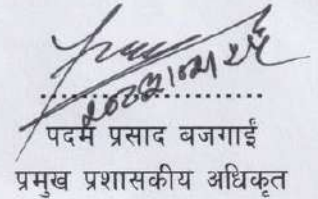 पदम प्रसाद बजगाईं
प्रमुख प्रशासकीय अधिकृत